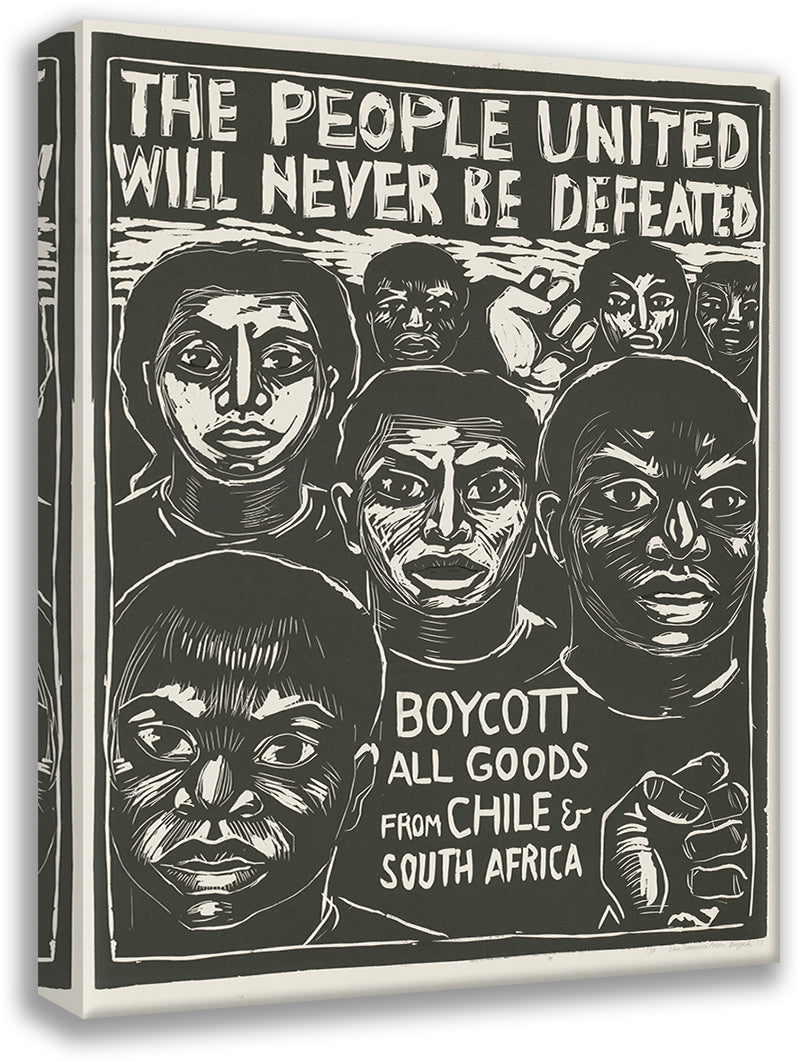 THE PEOPLE UNITED
WILL NEVER BE DEFEATED
BOYCOTT
ALL GOODS
FROM CHILE &
SOUTH AFRICA